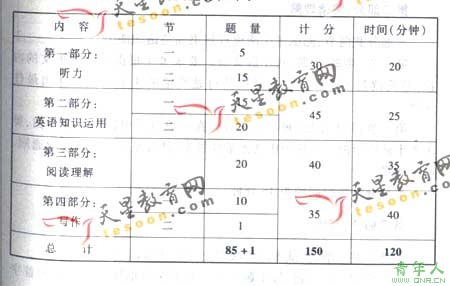 内 容 节 题 量 计 分 时间(分钟)
第一部分: 一 5 30 20
听力 二 15
第二部分: 一 15 45 25
英语知识运用 二 20
第三部分: 20 40 35
阅读理解
第四部分: 一 10 35 40
写作 二 1
总 计 85+1 150 120
天星教育网
tesoon.com
天星教育网
tesoon.com
天星教育网
tesoon.com
天星教育网
tesoon.com
青年人
www.QNR.cn